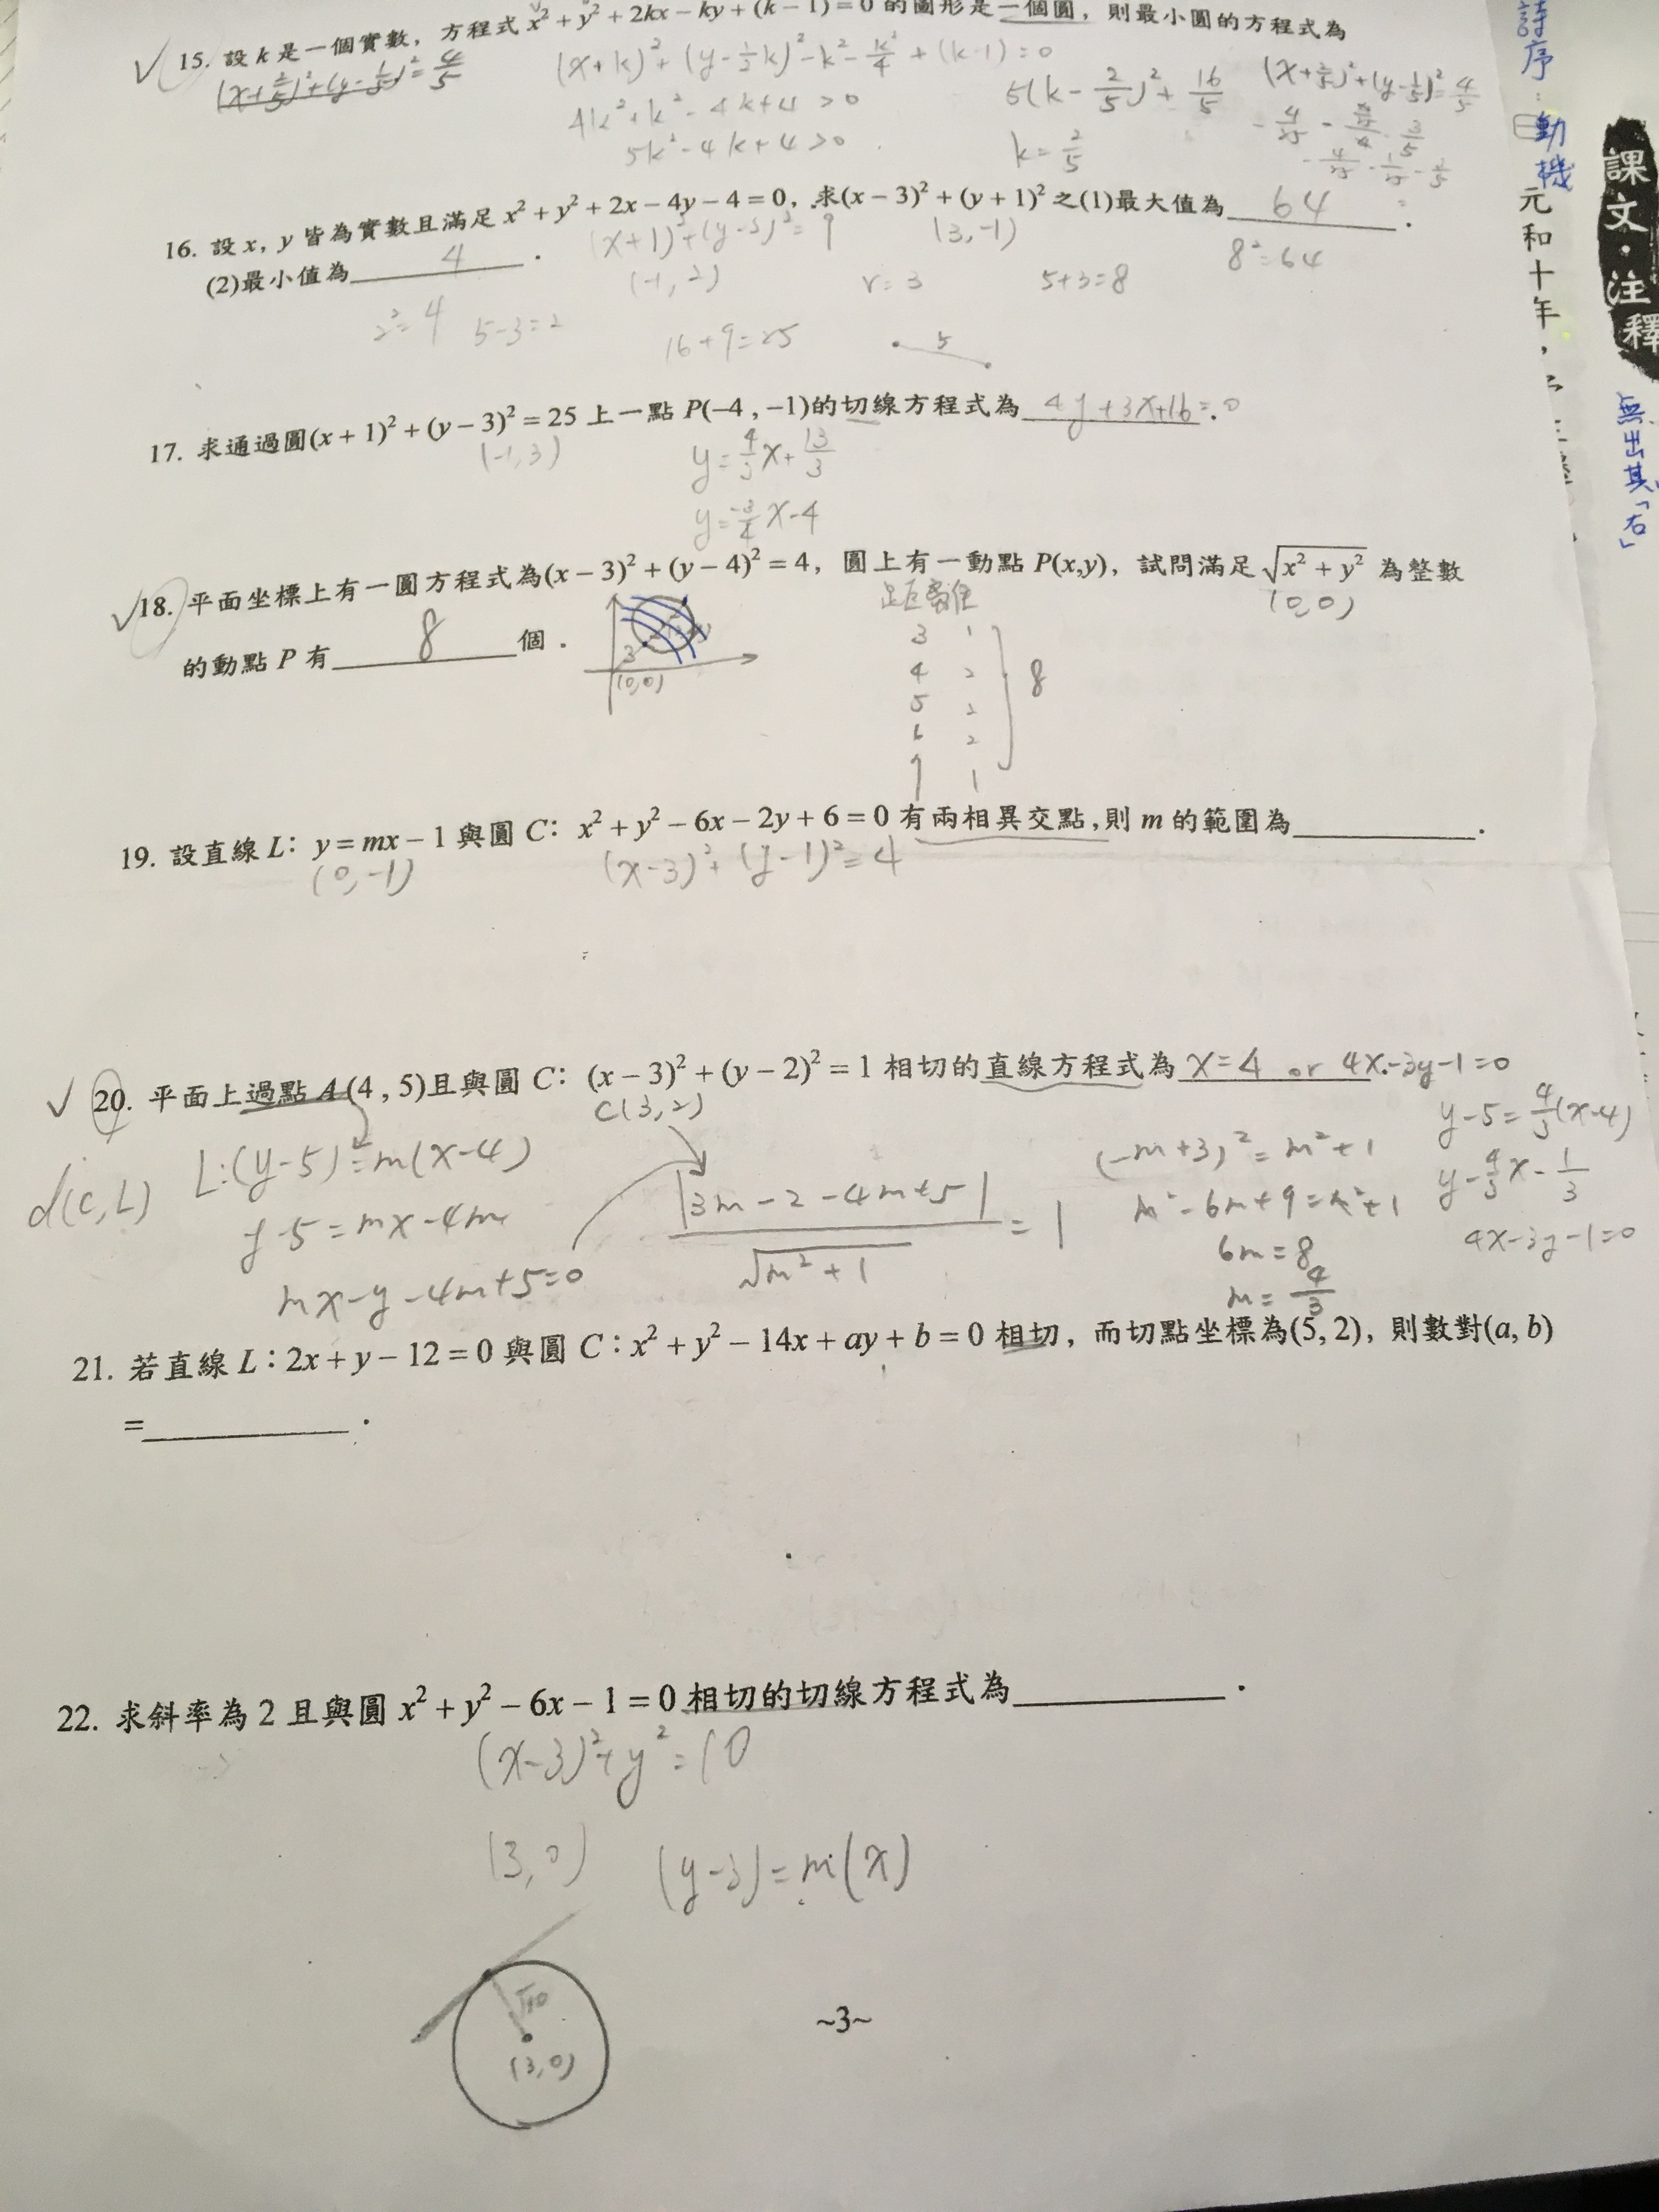 15. 設 k 是一個實數，方程式 x² + y² + 2kx − ky + (k − 1) = 0 的圖形是一個圓，則最小圓的方程式為
(x+2/5)²+(y-1/5)²=4/5
(x+k)²+(y-1/2k)²-k²-k²/4+(k-1)=0
4k²+k²-4k+4>0
5k²-4k+4>0
5(k-2/5)²+16/5
k=2/5
(x+2/5)²+(y-1/5)²=4/5
16. 設 x, y 皆為實數且滿足 x² + y² + 2x − 4y − 4 = 0，求(x − 3)² + (y + 1)² 之(1)最大值為 64 .
(2)最小值為 4 .
(x+1)²+(y-2)²=9
(3,-1)
(-1,2)
r=3
5+3=8
8²=64
2²=4
5-3=2
16+9=25
5
17. 求通過圓(x + 1)² + (y − 3)² = 25 上一點 P(−4 , −1)的切線方程式為 4y+3x+16=0 .
(-1,3)
y=4/3x+13/3
y=-3/4x-4
18. 平面坐標上有一圓方程式為(x − 3)² + (y − 4)² = 4，圓上有一動點 P(x,y)，試問滿足 √(x² + y²) 為整數
(0,0)
的動點 P 有 8 個．
3
(0,0)
距離
3 1
4 2
5 2
6 2
7 1
8
19. 設直線 L：y = mx − 1 與圓 C：x² + y² − 6x − 2y + 6 = 0 有兩相異交點,則 m 的範圍為 .
(0,-1)
(x-3)²+(y-1)²=4
20. 平面上過點 A (4 , 5)且與圓 C：(x − 3)² + (y − 2)² = 1 相切的直線方程式為 x=4 or 4x-3y-1=0
C(3,2)
d(C,L)
L:(y-5)=m(x-4)
y-5=mx-4m
mx-y-4m+5=0
|3m-2-4m+5| / √(m²+1) = 1
(-m+3)²=m²+1
m²-6m+9=m²+1
6m=8
m=4/3
y-5=4/3(x-4)
y-4/3x-1/3
4x-3y-1=0
21. 若直線 L：2x + y − 12 = 0 與圓 C：x² + y² − 14x + ay + b = 0 相切，而切點坐標為(5, 2)，則數對(a, b)
= .
22. 求斜率為 2 且與圓 x² + y² − 6x − 1 = 0 相切的切線方程式為 .
(x-3)²+y²=10
(3,0)
(y-3)=m(x)
√10
(3,0)
~3~
詩序：動機
元和十年，
課文·注釋
無出其「右」